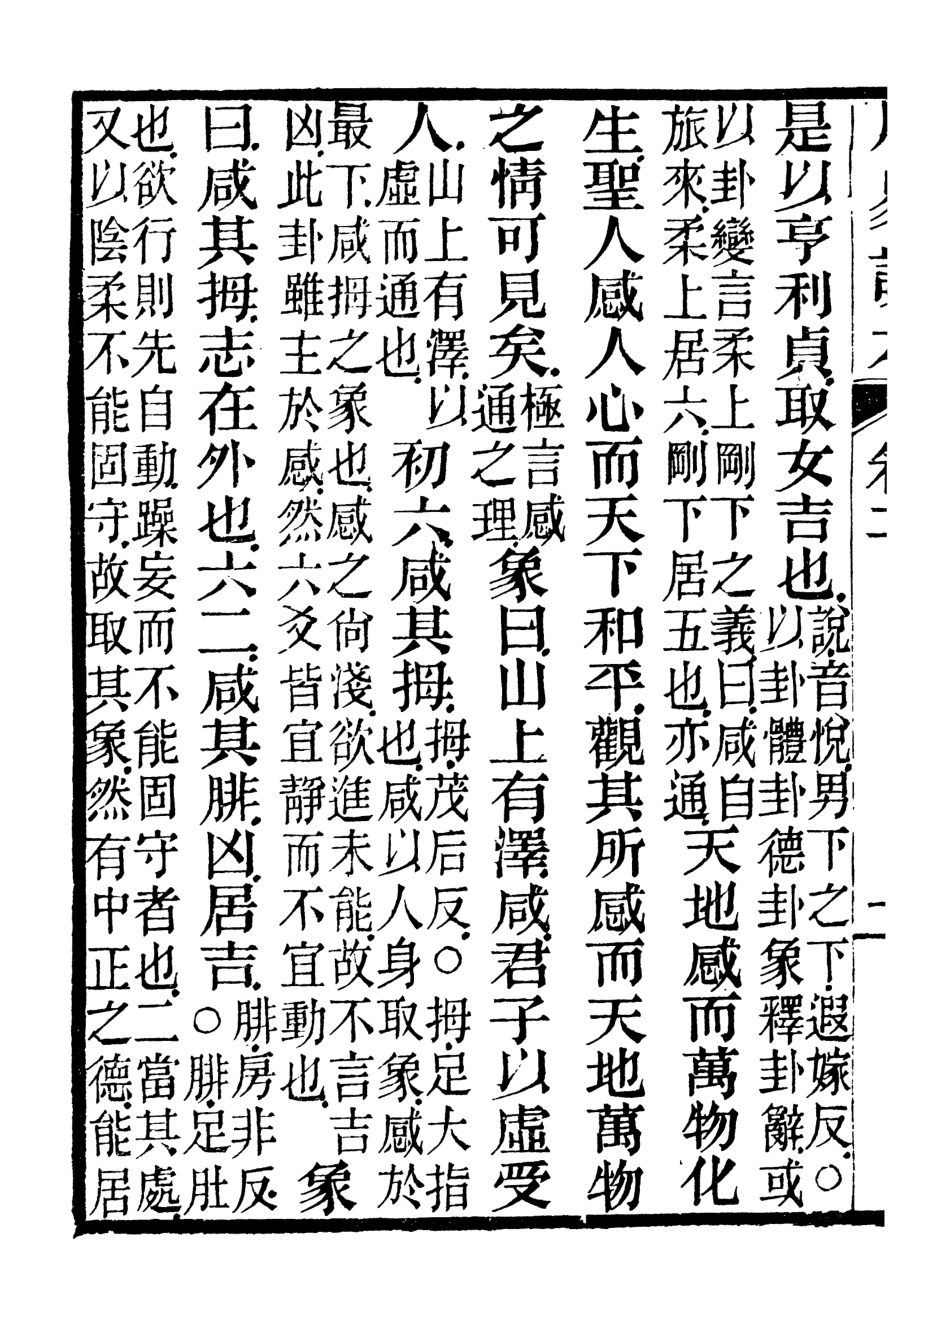 是以亨利貞取女吉也說音悅男下之下遐嫁反○以卦體卦德卦象釋卦辭或
以卦變言柔上剛下之義曰咸自旅來柔上居六剛下居五也亦通天地感而萬物化
生聖人感人心而天下和平觀其所感而天地萬物
之情可見矣極言感通之理象曰山上有澤咸君子以虛受
人山上有澤以虛而通也初六咸其拇拇茂后反○拇足大指也咸以人身取象感於
最下咸拇之象也感之尚淺欲進未能故不言吉凶此卦雖主於感然六爻皆宜靜而不宜動也象
曰咸其拇志在外也六二咸其腓凶居吉腓房非反○腓足肚
也欲行則先自動躁妄而不能固守者也二當其處又以陰柔不能固守故取其象然有中正之德能居